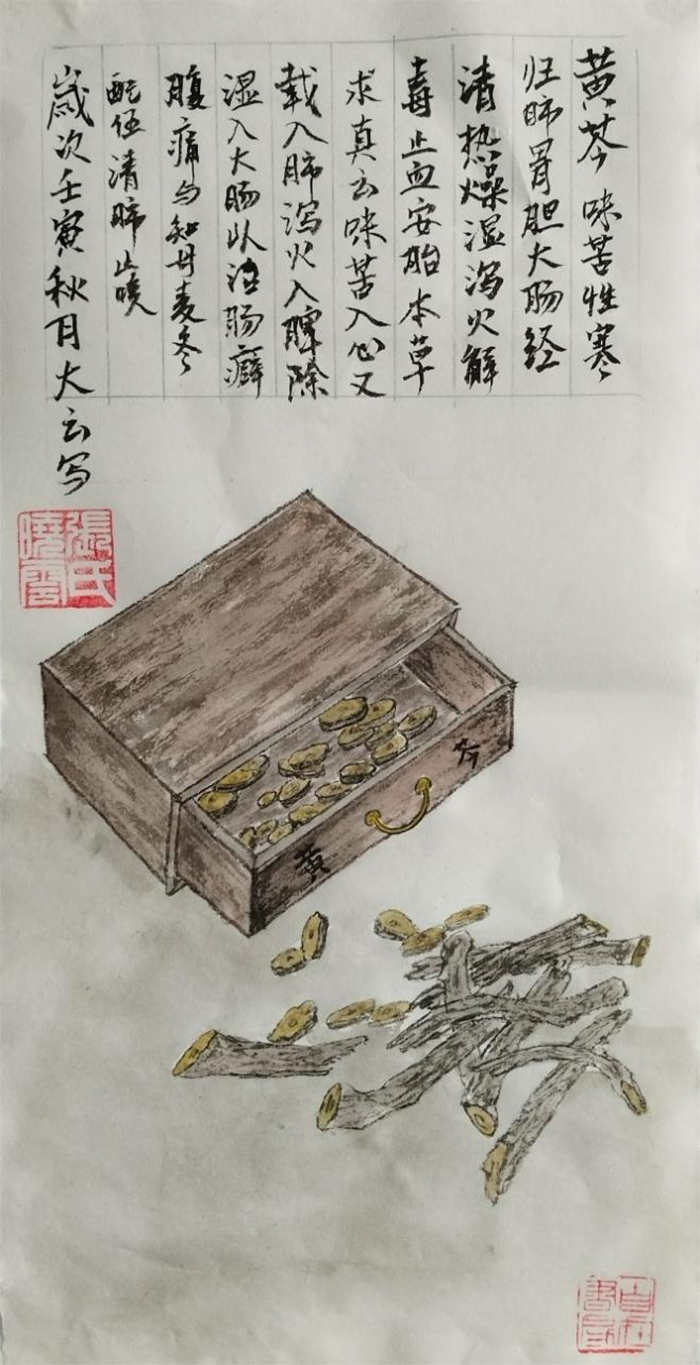 黄芩味苦性寒
归肺胃胆大肠经
清热燥湿泻火解
毒止血安胎本草
求真云味苦入心又
载入肺泻火入脾除
湿入大肠以治肠癖
腹痛与知母麦冬
配伍清肺止咳
歲次壬寅秋月大云写
張氏
曉雲
黄芩